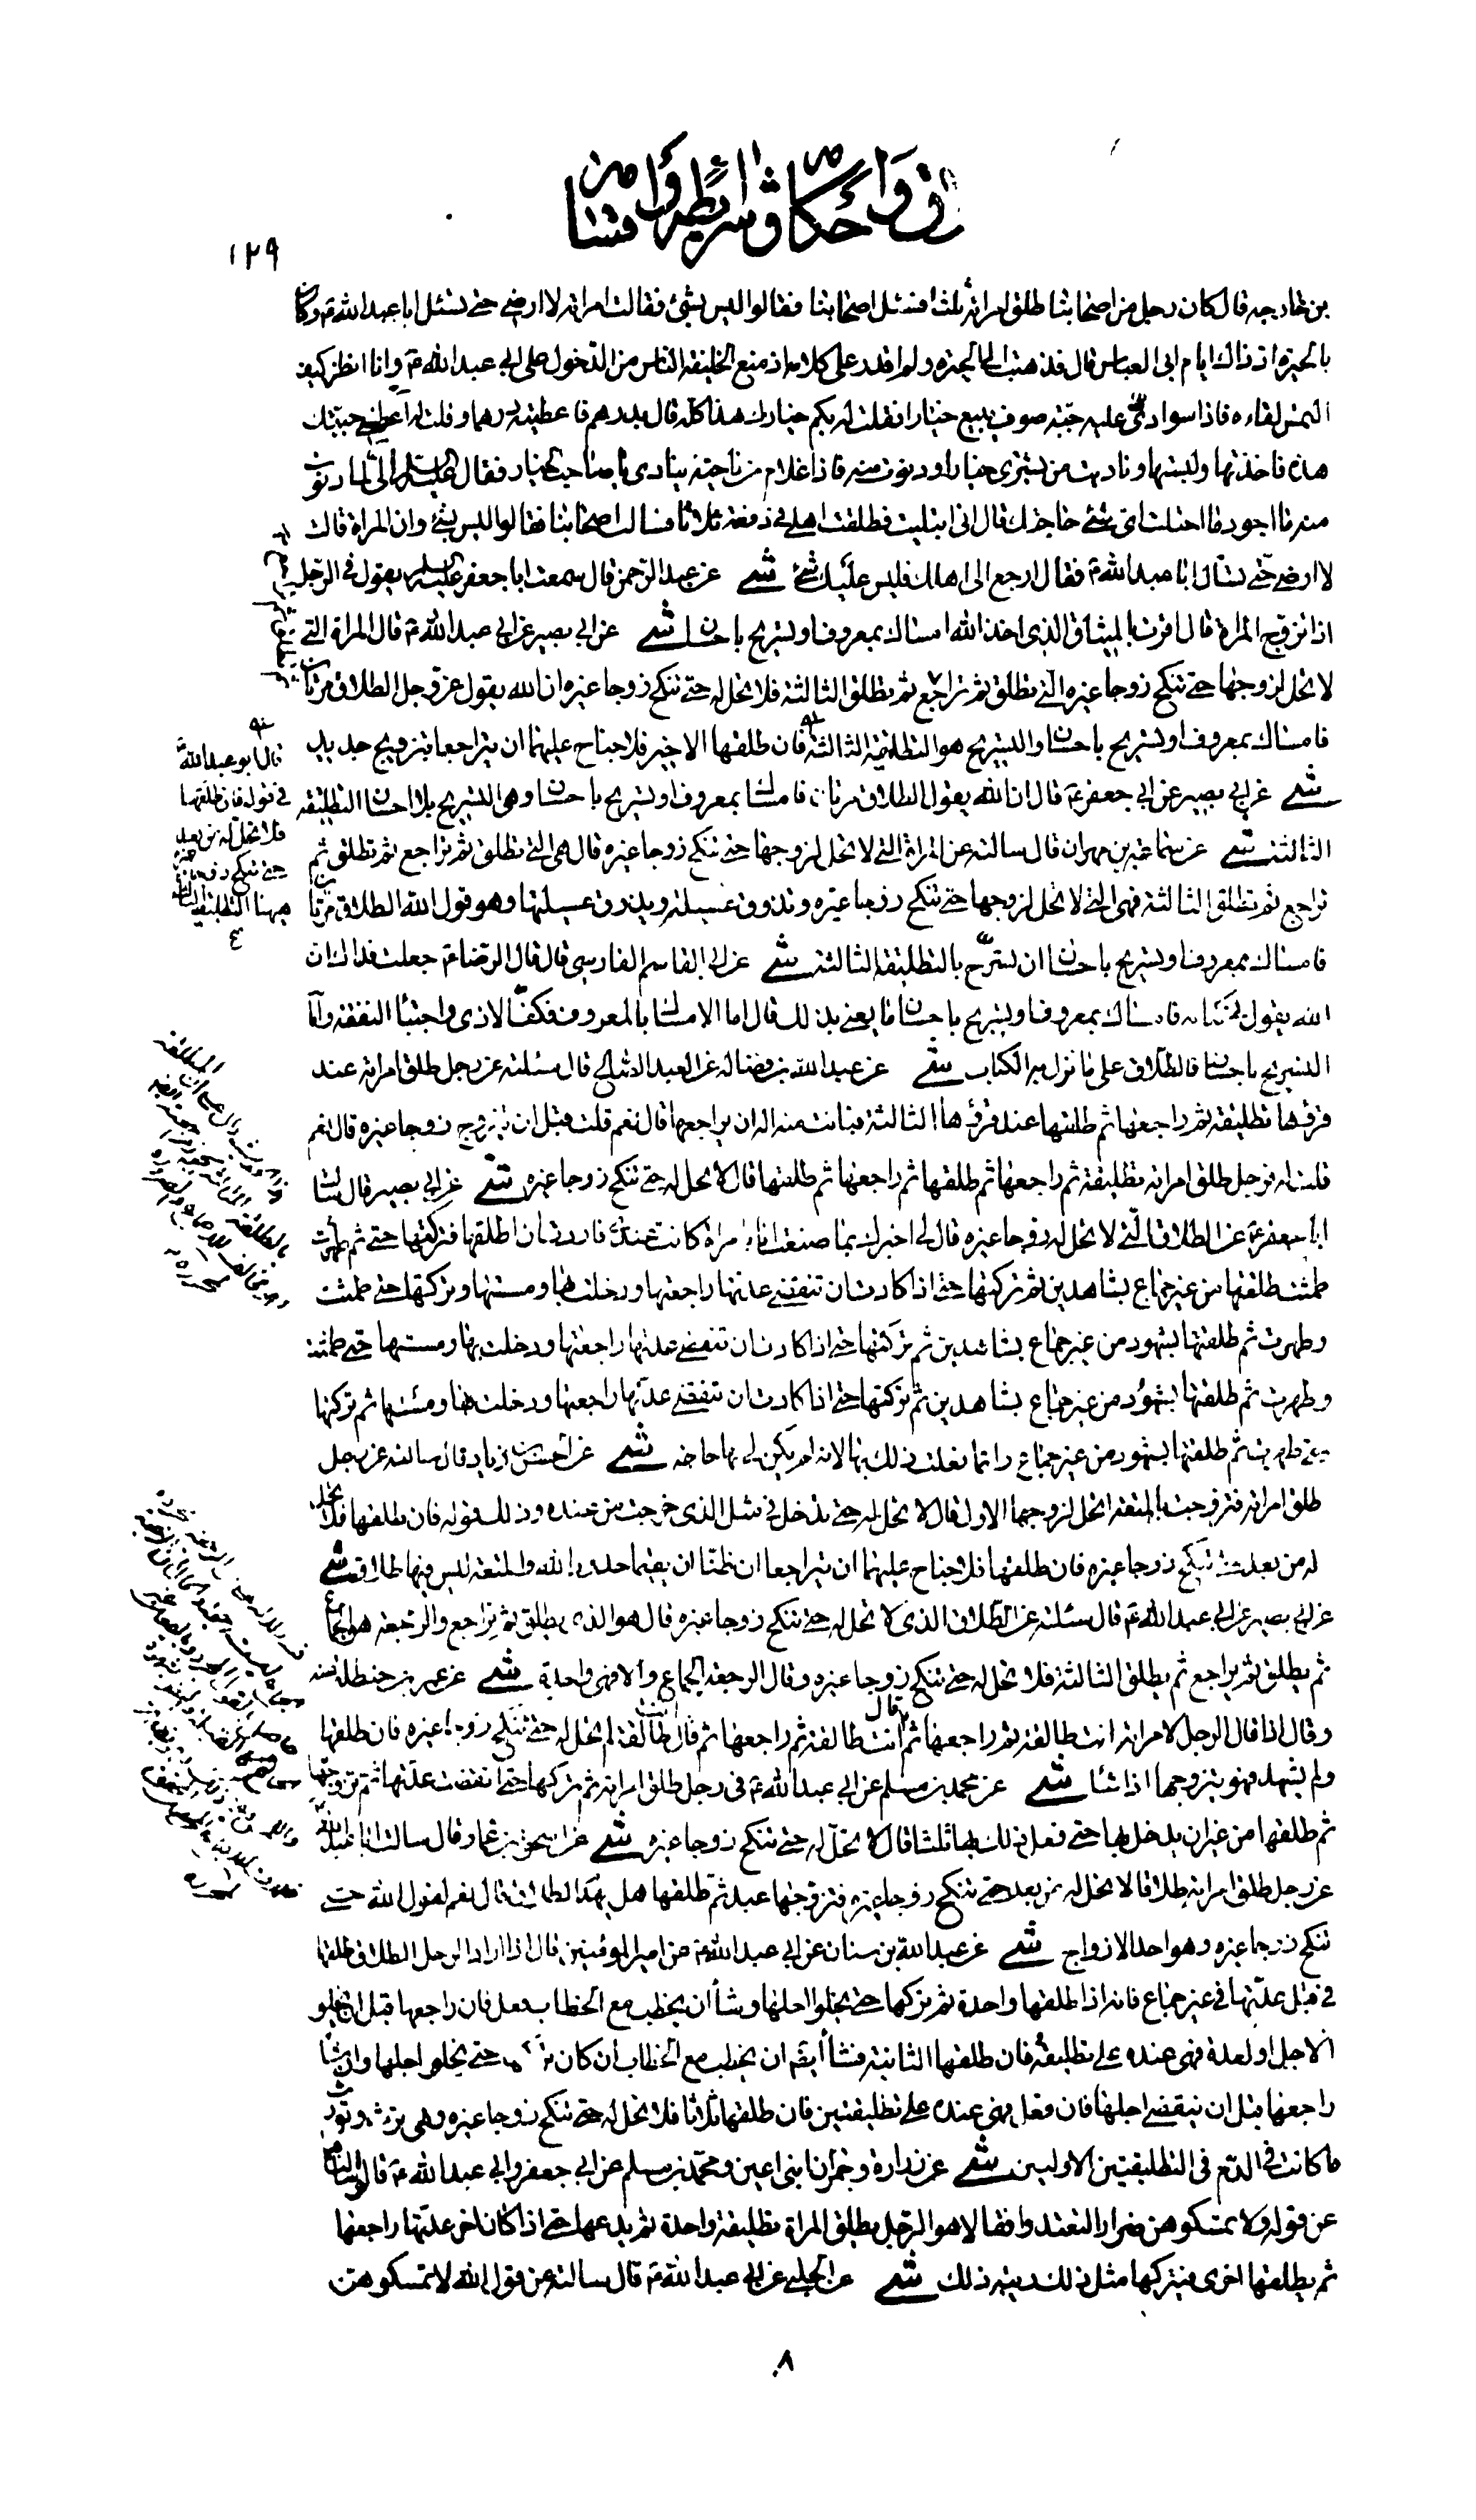 ١٢٩
بن خارجه قال كان رجل من اصحابنا طلق امراته ثلثا فسئل اصحابنا فقالوا ليس بشئ فقالت امراته لا ارضى حتى تسئل ابا عبد الله ع وكان
بالحيرة اذ ذاك ايام ابى العباس قال فذهبت الى الحيرة ولم اقدر على كلامه اذ منع الخليفة الناس من الدخول على ابى عبد الله ع وانا انظر كيف
التمس لقاءه فاذا سوادى عليه جبة صوف يبيع خيارا فقلت له بكم خيارك هذا كله قال بدرهم فاعطيته درهما وقلت له اعطنى جبتك
هذه فاخذتها ولبستها وناديت من يشترى خيارا ودنوت منه فاذا غلام من ناحية ينادى يا صاحب الخيار فقال عليه السلام لى لما دنوت
منه ما اجود ما احتلت اى شئ حاجتك قال انى ابتليت فطلقت اهلى فى دفعة ثلاثا فسالت اصحابنا فقالوا ليس بشئ وان المراة قالت
لا ارضى حتى تسال ابا عبد الله ع فقال ارجع الى اهلك فليس عليك شئ شى عن عبد الرحمن قال سمعت ابا جعفر عليه السلام يقول فى الرجل
اذا تزوج المراة قال اقرت بالميثاق الذى اخذ الله امساك بمعروف او تسريح باحسان شى عن ابى بصير عن ابى عبد الله ع قال المراة التى
لا تحل لزوجها حتى تنكح زوجا غيره التى تطلق ثم تراجع ثم تطلق الثالثة فلا تحل له حتى تنكح زوجا غيره ان الله يقول عز وجل الطلاق مرتان
فامساك بمعروف او تسريح باحسان والتسريح هو التطليقة الثالثة فان طلقها الاخير فلا جناح عليهما ان يتراجعا بتزويج جديد
شى عن ابى بصير عن ابى جعفر ع قال ان الله يقول الطلاق مرتان فامساك بمعروف او تسريح باحسان وهى التسريح بلا احسان التطليقة
الثالثة شى عن سماعة بن مهران قال سالته عن المراة التى لا تحل لزوجها حتى تنكح زوجا غيره قال هى التى تطلق ثم تراجع ثم تطلق ثم
تراجع ثم تطلق الثالثة فهى التى لا تحل لزوجها حتى تنكح زوجا غيره وتذوق عسيلته ويذوق عسيلتها وهو قول الله الطلاق مرتان
فامساك بمعروف او تسريح باحسان ان تسرح بالتطليقة الثالثة شى عن ابى القاسم الفارسى قال قال الرضا ع جعلت فداك ان
الله يقول فى كتابه فامساك بمعروف او تسريح باحسان ما يعنى بذلك قال اما الامساك بالمعروف فكف الاذى واجباء النفقة واما
التسريح باحسان فالطلاق على ما نزل به الكتاب شى عن عبد الله بن فضاله عن العبد الصالح قال سئلته عن رجل طلق امراته عند
قرؤها تطليقة ثم راجعها ثم طلقها عند قرؤها الثالثة فبانت منه اله ان يراجعها قال نعم قلت قبل ان تتزوج زوجا غيره قال نعم
قلت له فرجل طلق امراته تطليقة ثم راجعها ثم طلقها ثم راجعها ثم طلقها قال لا تحل له حتى تنكح زوجا غيره شى عن ابى بصير قال سالت
ابا جعفر ع عن الطلاق التى لا تحل له زوجا غيره قال لى اخبرك بما صنعت انا بامراة كانت عندى فاردت ان اطلقها فتركتها حتى ثم طهرت
طمثت طلقتها من غير جماع بشاهدين ثم تركتها حتى اذا كادت ان تنقضى عدتها راجعتها ودخلت بها ومسستها وتركتها حتى طمثت
وطهرت ثم طلقتها بشهود من غير جماع بشاهدين ثم تركتها حتى اذا كادت ان تنقضى عدتها راجعتها ودخلت بها ومسستها حتى طمثت
وطهرت ثم طلقتها بشهود من غير جماع بشاهدين ثم تركتها حتى اذا كادت ان تنقضى عدتها راجعتها ودخلت بها ومسستها ثم تركتها
حتى طهرت ثم طلقتها بشهود من غير جماع وانما فعلت ذلك بها لانه لم يكن لى بها حاجة شى عن الحسن بن زياد قال سالته عن رجل
طلق امراته فتزوجت بالمتعة اتحل لزوجها الاول قال لا تحل له حتى تدخل فى مثل الذى خرجت من عنده وذلك قوله فان طلقها فلا تحل
له من بعد حتى تنكح زوجا غيره فان طلقها فلا جناح عليهما ان يتراجعا ان ظنا ان يقيما حدود الله والمتعة ليس فيها طلاق شى
عن ابى بصير عن ابى عبد الله ع قال سئلته عن الطلاق الذى لا تحل له حتى تنكح زوجا غيره قال هو الذى يطلق ثم يراجع والرجعة هو الجماع
ثم يطلق ثم يراجع ثم يطلق الثالثة فلا تحل له حتى تنكح زوجا غيره وقال الرجعة الجماع والا فهى واحدة شى عن عمر بن حنظله عنه
وقال اذا قال الرجل لامراته انت طالقة ثم راجعها ثم قال انت طالقة ثم راجعها ثم قال انت طالقة لم تحل له حتى تنكح زوجا غيره فان طلقها
ولم يشهد فهو يتزوجها اذا شاء شى عن محمد بن مسلم عن ابى عبد الله ع فى رجل طلق امراته ثم تركها حتى انقضت عدتها ثم تزوجها
ثم طلقها من غير ان يدخل بها حتى فعل ذلك بها ثلثا قال لا تحل له حتى تنكح زوجا غيره شى عن اسحق بن عمار قال سالت ابا عبد الله
عن رجل طلق امراته طلاقا لا تحل له من بعد حتى تنكح زوجا غيره فتزوجها عبد ثم طلقها هل يهدم الطلاق قال نعم لقول الله حتى
تنكح زوجا غيره وهو احد الازواج شى عن عبد الله بن سنان عن ابى عبد الله ع عن امير المؤمنين قال اذا اراد الرجل الطلاق طلقها
فى قبل عدتها فى غير جماع فانه اذا طلقها واحدة ثم تركها حتى يخلوا اجلها وشاء ان يخطب مع الخطاب فعل فان راجعها قبل ان يخلو
الاجل او العدة فهى عنده على تطليقة فان طلقها الثانية فشاء ايضا ان يخطب مع الخطاب ان كان تركها حتى يخلو اجلها وان شاء
راجعها قبل ان ينقضى اجلها فان فعل فهى عنده على تطليقتين فان طلقها ثلاثا فلا تحل له حتى تنكح زوجا غيره وهى ترث وتورث
ما كانت فى الدم فى التطليقتين الاوليين شى عن زرارة وحمران ابنى اعين ومحمد بن مسلم عن ابى جعفر وابى عبد الله ع قالوا سالناهما
عن قوله ولا تمسكوهن ضرارا لتعتدوا فقالا هو الرجل يطلق المراة تطليقة واحدة ثم يدعها حتى اذا كان اخر عدتها راجعها
ثم يطلقها اخرى فيتركها مثل ذلك فنهى ذلك شى عن الحلبى عن ابى عبد الله ع قال سالته عن قول الله لا تمسكوهن
قال ابو عبد الله ع
فى قوله فان طلقها
فلا تحل له من بعد
حتى تنكح زوجا غيره
ههنا التطليقة الثالثة
٨